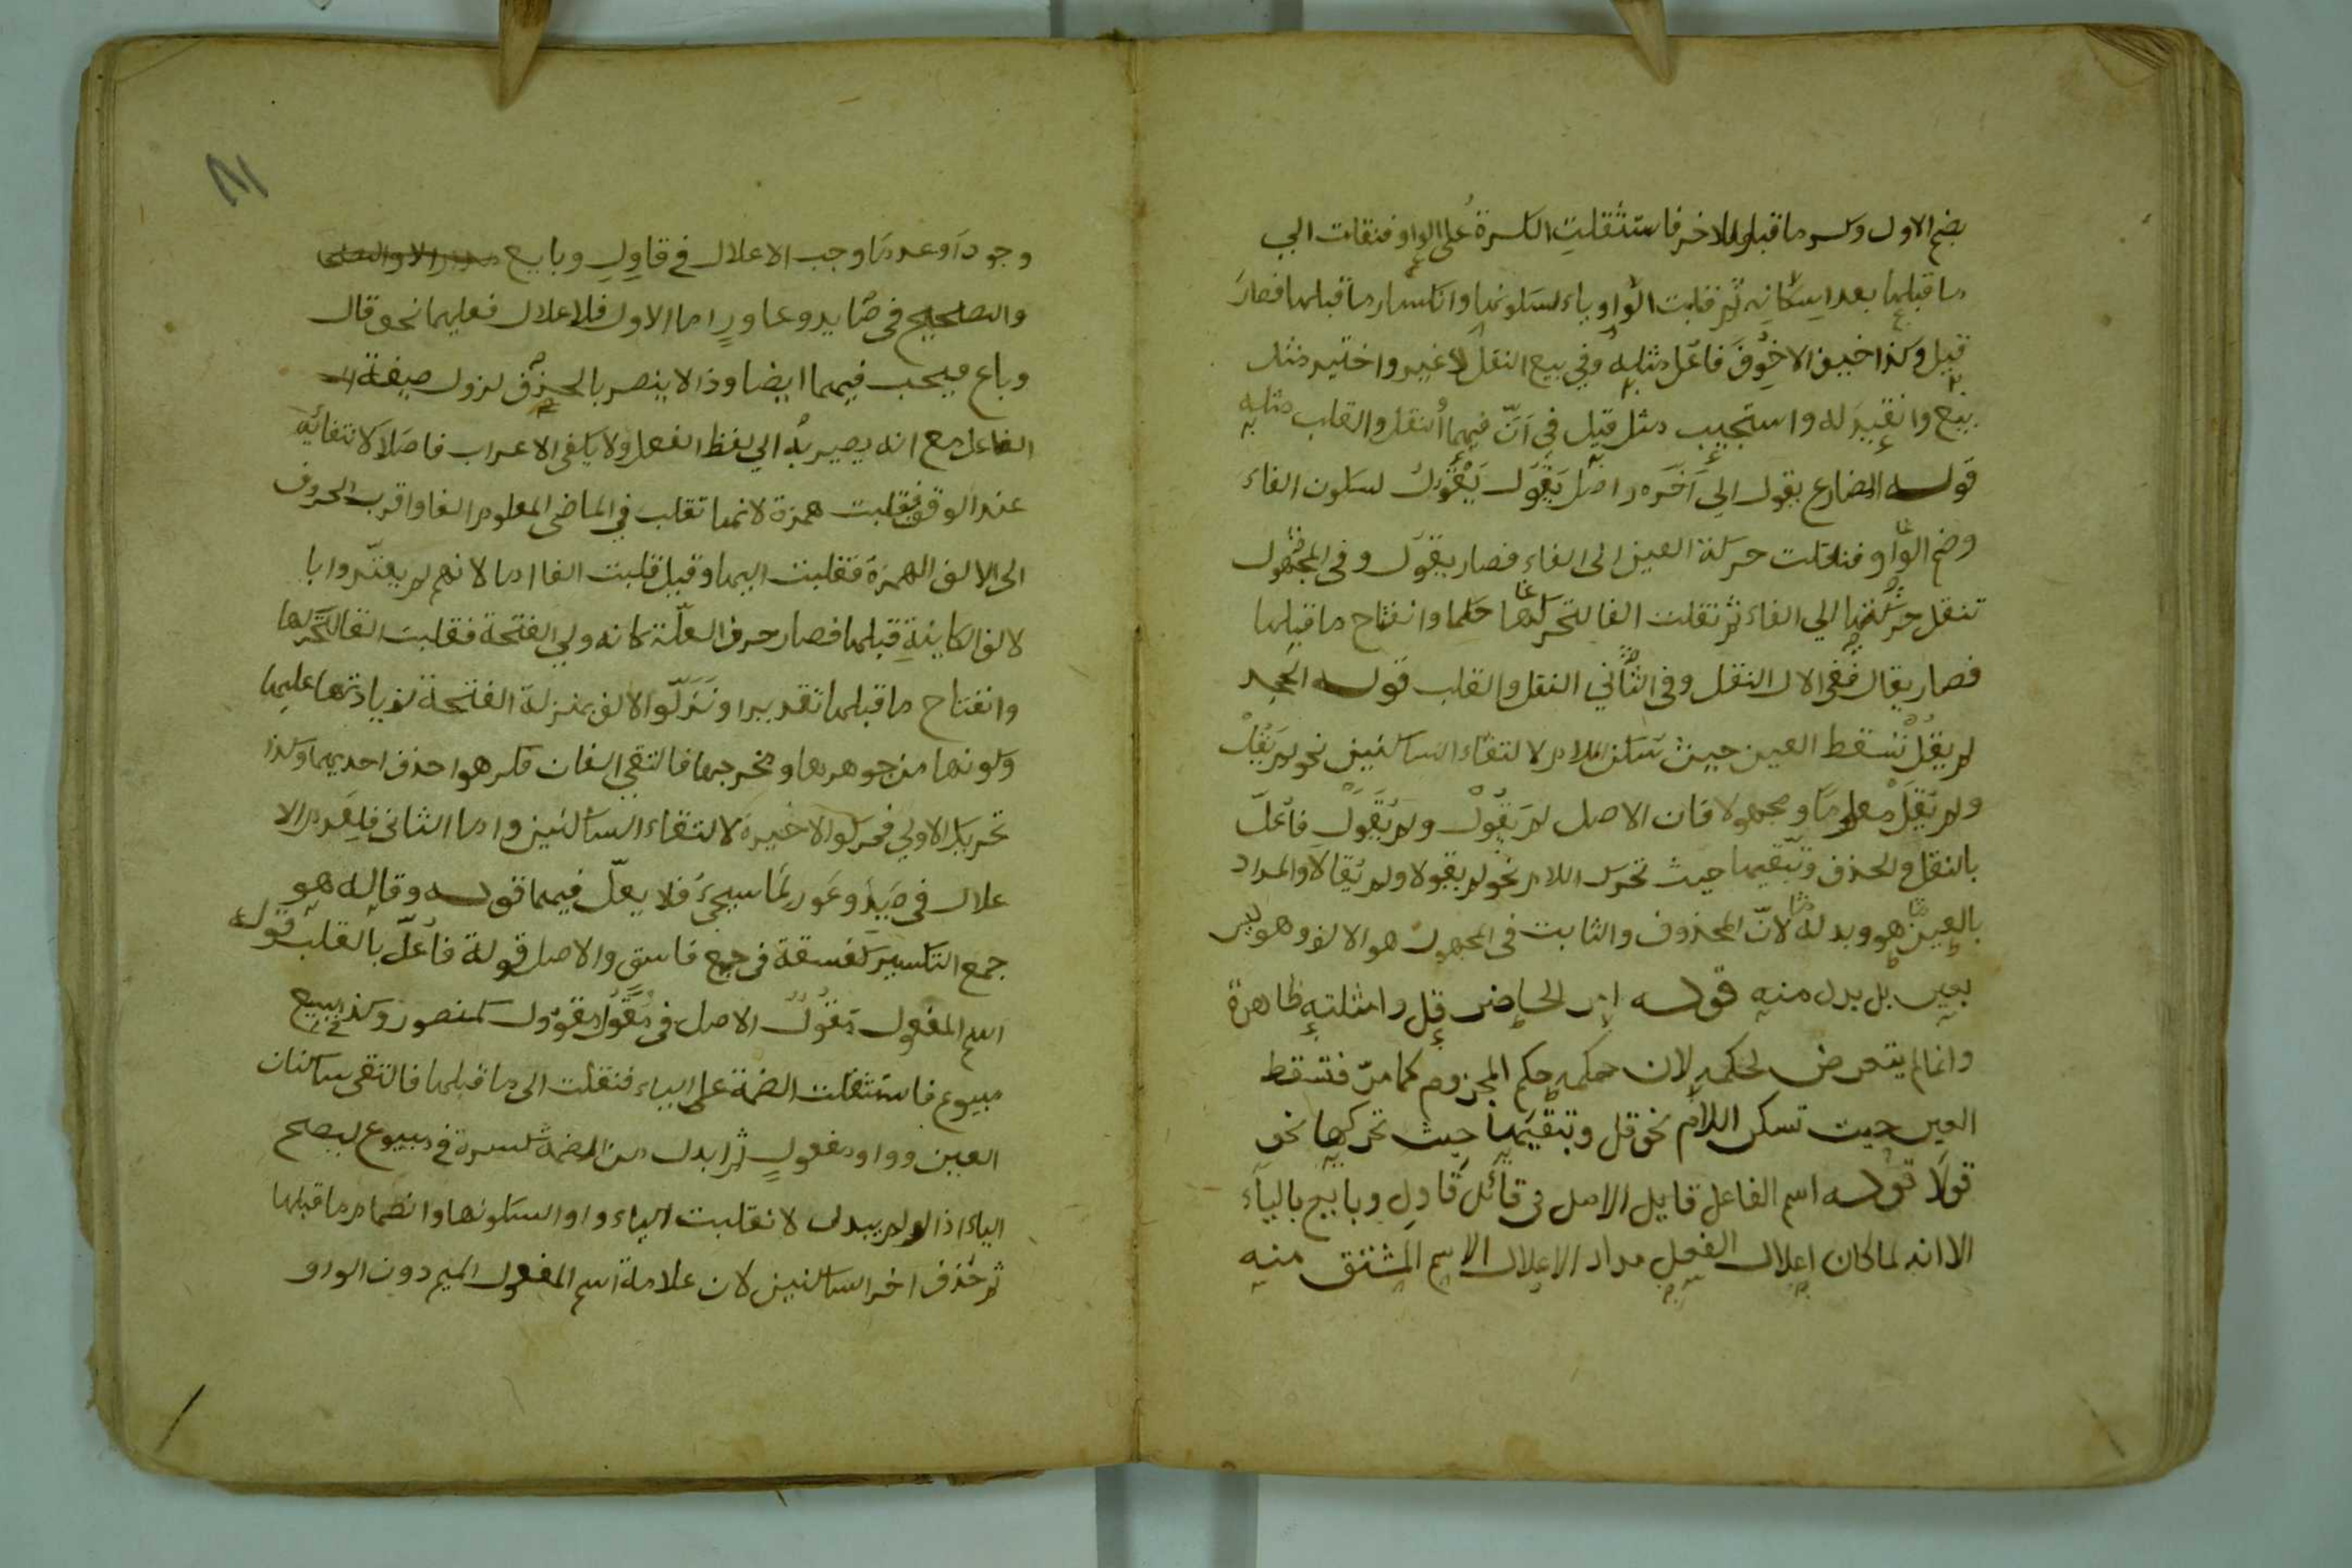 بضم الاول وكسر ما قبل الاخر فاستثقلت الكسرة على الواو فنقلت الي
ما قبلها بعد اسكانه ثم قلبت الواو ياء لسكونها وانكسار ما قبلها فصار
قيل وكذا خيف الاخوف فاعل مثله وفي بيع النقل لا غير واختير مثل
بيع وانقيد له واستجيب مثل قيل في أنّ فيهما النقل والقلب مثله
قوله المضارع يقول الي آخره اصل يقول يَقْوُل لسكون الفاء
وضم الواو فنقلت حركة العين الى الفاء فصار يقول وفي المجهول
تنقل حركتها الي الفاء ثم تقلب الفا لتحركها حكما وانفتاح ما قبلها
فصار يقال ففي الاول النقل وفي الثاني النقل والقلب قوله الجحد
لم يقل تسقط العين حيث تسكن اللام لالتقاء الساكنين نحو لم يَقُلْ
ولم يُقَلْ معلوما ومجهولا فان الاصل لم يَقْوُلْ ولم يُقْوَلْ فاعلّ
بالنقل والحذف وتبقيها حيث تحرك اللام نحو لم يقولا ولم يُقالا والمراد
بالعين هو وبدله لانّ المحذوف والثابت في المجهول هو الالف وهو ليس
بعين بل بدل منه قوله امر الحاضر قل وامثلته ظاهرة
وانما لم يتعرض لحكمه لان حكمه حكم المجزوم كما مرّ فتسقط
العين حيت تسكن اللام نحو قل وتبقيها حيث تحركها نحو
قولا قوله اسم الفاعل قايل الاصل في قائل قاول وبايع بالياء
الا انه لما كان اعلال الفعل مدار الاعلال الاسم المشتق منه
وجودا وعدما وجب الاعلال في قاول وبايع
والتصحيح في صايد وعاور اما الاول فلاعلال فعليهما نحو قال
وباع فيجب فيهما ايضا وذا لا ينصر بالحذف لزول صيغة
الفاعل مع انه يصير به الي لفظ الفعل ولا يكفى الاعراب فاصلا لانتفائه
عند الوقف فقلبت همزة لانها تقلب في الماضى المعلوم الفا واقرب الحروف
الى الالف الهمزة فقلبت اليها وقيل قلبت الفا اما لانهم لم يعتدّوا با
لالف الكاينة قبلها فصار حرف العلّة كانه ولي الفتحة فقلبت الفا لتحركها
وانفتاح ما قبلها تقديرا ونَزّلوا الالف بمنزلة الفتحة لزيادتها عليها
وكونها من جوهرها ومخرجها فالتقي الفان فكرهوا حذف احديهما وكذا
تحريك الاولي فحركوا الاخيرة لالتقاء الساكنين واما الثانى فلعدم الا
علال في صَيِدَ وعَوِر لما سيجئ فلا يعلّ فيهما قوله وقالة هو
جمع التكسير كفسقة في جمع فاسق والاصل قولة فاعلّ بالقلب قوله
اسم المفعول مَقُوْلٌ الاصل في مَقُول مقوول كمنصور وكذا مبيع
مبيوع فاستثقلت الضمة على الياء فنقلت الى ما قبلها فالتقى ساكنان
العين وواو مفعول ثم ابدل من الضمة كسرة في مبيوع ليصح
الياء اذ لو لم يبدل لانقلبت الياء واوا لسكونها وانضمام ما قبلها
ثم حذف اخر الساكنين لان علامة اسم المفعول الميم دون الواو